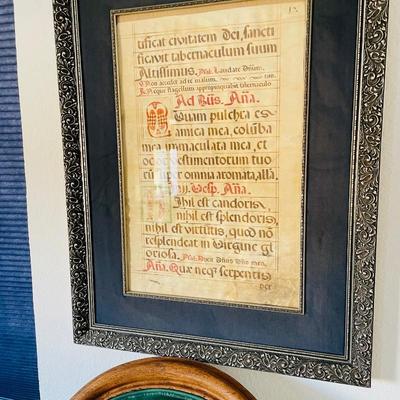 12.
tificat civitatem Dei, sancti
ficavit tabernaculum suum
Altissimus. Psal. Laudate Dñum.
V. Non accedet ad te malum.
R. Et que flagellum appropinquabit tabernaculo
Ad Bñs. Aña.
Quam pulchra es
amica mea, columba
mea immaculata mea, et
odor vestimentorum tuo
rum super omnia aromata, alla.
ij. Vesp. Aña.
Nihil est candoris,
nihil est splendoris,
nihil est virtutis, quod nō
resplendeat in Virgine gl
oriosa. Psal. Dixit Dñus Dño meo.
Aña. Quæ neq; serpentis
per